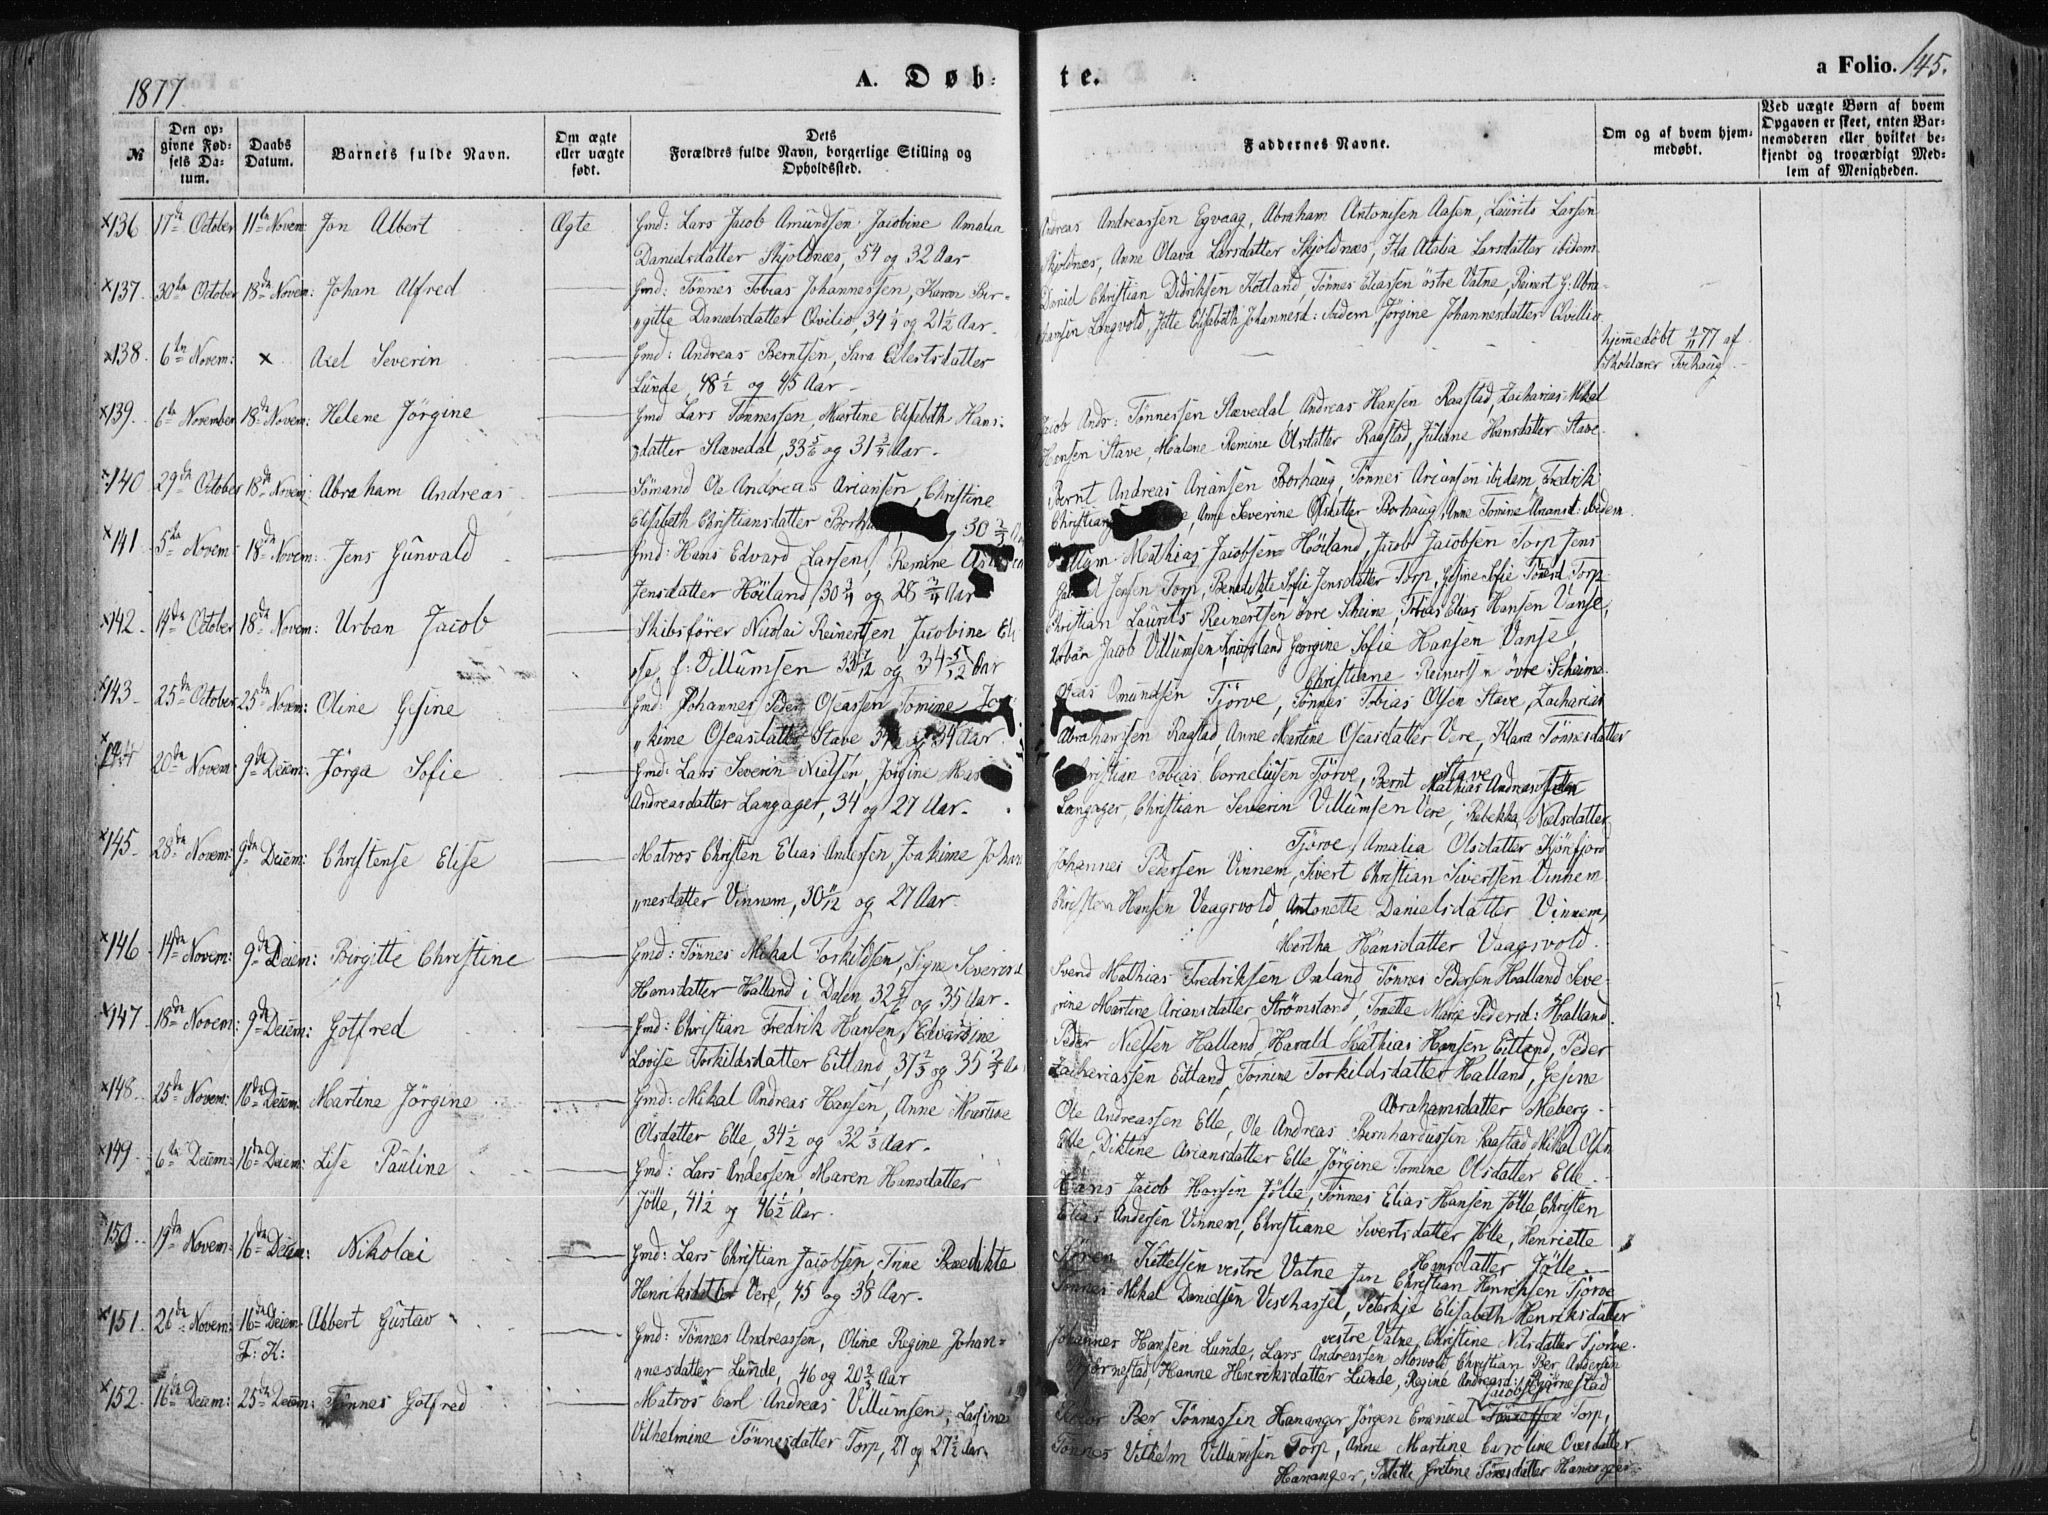 1877.
A. Døb-
te.
a Folio. 145.
№
Den op-
givne Fød-
sels Da-
tum.
Daabs
Datum.
Barnets fulde Navn.
Om ægte
eller uægte
født.
Dets
Forældres fulde Navn, borgerlige Stilling og
Opholdssted.
Faddernes Navne.
Om og af hvem hjem-
medøbt.
Ved uægte Børn af hvem
Opgaven er skeet, enten Bar-
nemoderen eller hvilket be-
kjendt og troværdigt Med-
lem af Menigheden.
×136 17de October 11te Novem: Jon Albert Ægte Gmd: Lars Jacob Amundsen, Jacobine Amalia
Danielsdatter Skjoldnæs, 54 og 32 Aar
Andreas Andreassen Egvaag, Abraham Antonisen Aasen, Laurits Larsen
Skjoldnæs, Anne Olava Larsdatter Skjoldnæs, Ida Atalia Larsdatter ibidem
×137. 30te October 18de Novem: Johan Alfred Gmd: Tönnes Tobias Johannessen, Karen Bir-
„gitte Danielsdatter Qvilio, 34 1/4 og 21 1/2 Aar.
Daniel Christian Didriksen Kötland, Tönnes Eliassen östre Vatne, Reinert G: Abra-
hamsen Langvold, Jette Elisabeth Johannesd: ibidem, Jörgine Johannesdatter Qvillio
×138. 6te Novem: × Axel Severin Gmd: Andreas Berntsen, Sara Eilertsdatter
Lunde, 48 1/2 og 45 Aar
hjemmedøbt 77 af
Skolelærer
×139. 6te November 18de Novem: Helene Jörgine Gmd Lars Tönnessen, Martine Elisabeth Hans-
„datter Stavedal, 33 5/6 og 31 3/4 Aar.
Jacob Andr: Tönnessen Stævedal Andreas Hansen Raastad, Zacharias Mikal
Hansen Stave, Malene Remine Olsdatter Raastad, Juliane Hansdatter Stave.
×140 29de October 18de Novem: Abraham Andreas Sömand Ole Andreas Ariansen, Christine
Elisabeth Christiansdatter 30 2/3
Bernt Andreas Ariansen Borhaug Tönnes Ariansen ibidem, Fredrik
Anne Severine Olsdatter Borhaug, Anne Tomine Ariansd: ibidem.
×141 5te Novem: 18de Novem: Jens Gunvald Gmd: Hans Edvard Larsen, Remine
Jensdatter Höiland, 30 3/4 og 28 3/4 Aar
Mathias Jacobsen Höiland, Jacob Jacobsen Torp Jens
Jensen Torp, Benedikte Sofie Jensdatter Torp, Gesine Sofie Tönesd Torp
×142. 14de October 18de Novem: Urban Jacob Skibsförer Nicolai Reinertsen Jacobine
f: Villumsen 33 7/12 og 34 5/12 Aar
Christian Laurits Reinertsen övre Skeime, Tobias Elias Hansen Vanse,
Urban Jacob Villumsen Georgine Sofie Hansen Vanse,
Christiane Reinertsen övre Skeime.
×143. 25de October 25de Novem: Oline Gesine Gmd: Johannes Peder Oseassen Tomine Jo-
„kime Oseasdatter Stave 34 Aar.
Oseas Omundsen Tjörve, Tönnes Tobias Olsen Stave, Zacharias
Abrahamsen Raastad, Anne Martine Oseasdatter Vere, Klara Tönnesdatter
Stave
×144 20de Novem: 9de Decem: Jörga Sofie Gmd: Lars Severin Nielsen, Jörgine
Andreasdatter Langager, 34 og 27 Aar.
Christian Tobias Corneliussen Tjörve, Bernt Mathias Andreassen
Langager, Christian Severin Villumsen Vere, Rebekka Nielsdatter
Tjörve, Amalia Olsdatter Kjörefjord
×145. 28de Novem: 9de Decem: Christense Elise Matros Christen Elias Andersen, Joakime Johan
„nesdatter Vinnem, 30 11/12 og 27 Aar.
Johannes Pedersen Vinnem, Sivert Christian Sivertsen Vinnem
Christen Hansen Vaagsvold, Antonette Danielsdatter Vinnem,
Mertha Hansdatter Vaagsvold.
×146 14de Novem: 9de Decem: Birgitte Christine Gmd: Tönnes Mikal Torkildsen, Signe
Hansdatter Halland i Dalen 32 5/6 og 35 Aar.
Svend Mathias Fredriksen Ouland Tönnes Pedersen Halland Seve-
rine Martine Ariansdatter Strömsland, Tonette Marie Pedersd: Halland.
×147 18de Novem: 9de Decem: Gotfred Gmd: Christian Fredrik Hansen, Edvardine
Lovise Torkildsdatter Eitland, 31 2/3 og 35
Peder Nielsen Halland, Harald Mathias Hansen Eitland, Peder
Zachariassen Eitland, Tomine Torkildsdatter Halland, Gesine
Abrahamsdatter Meberg.
×148. 25de Novem: 16de Decem: Martine Jörgine Gmd: Mikal Andreas Hansen, Anne Martine
Olsdatter Elle, 34 1/2 og 32 1/3 Aar.
Ole Andreassen Elle, Ole Andreas Bernhardussen Raastad Mikal Olsen
Elle, Diktine Ariansdatter Elle, Jörgine Tomine Olsdatter Elle
×149. 6te Decem: 16de Decem: Lise Pauline Gmd: Lars Andersen, Maren Hansdatter
Jölle, 41 1/2 og 46 1/2 Aar.
Hans Jacob Hansen Jölle, Tönnes Elias Hansen Jölle, Christen
Elias Andersen Vinnem, Christiane Sivertsdatter Jölle, Henriette
Hansdatter Jölle.
150. 19de Novem: 16de Decem: Nikolai Gmd: Lars Christian Jacobsen, Trine Benedikte
Henriksdatter Vere, 45 og 38 Aar.
Sören Kittelsen vestre Vatne Jan Christian Henriksen Tjörve
Tönnes Mikal Danielsen Vesthassel, Peterkje Elisabeth Henriksdatter
vestre Vatne, Christine Nilsdatter Tjörve.
×151. 26de Novem: 16de Decem: Albert Gustav
F: K:
Gmd: Tönnes Andreassen, Oline Regine Johan-
„nesdatter Lunde, 46 og 20 2/3 Aar
Johannes Hansen Lunde, Lars Andreassen Mosvold Christian Ber Andersen
Bjørnestad, Hanne Henriksdatter Lunde, Regine Andreasd: Bjørnestad
×152. 16de Decem: 25de Decem: Tönnes Gotfred Matros Carl Andreas Villumsen, Lasine
Vilhelmine Tönnesdatter Torp, 27 og 27 1/2 Aar.
Jacobsen
Ber Tönnessen Hananger, Jörgen Emanuel Tönnessen Torp,
Tönnes Vilhelm Villumsen Torp, Anne Martine Caroline Ovesdatter
Hananger, Talette Gretine Tönesdatter Hananger